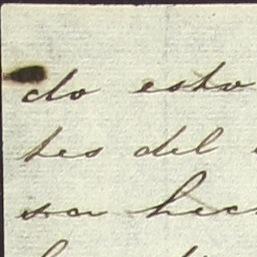 do esto
tes del
son hec